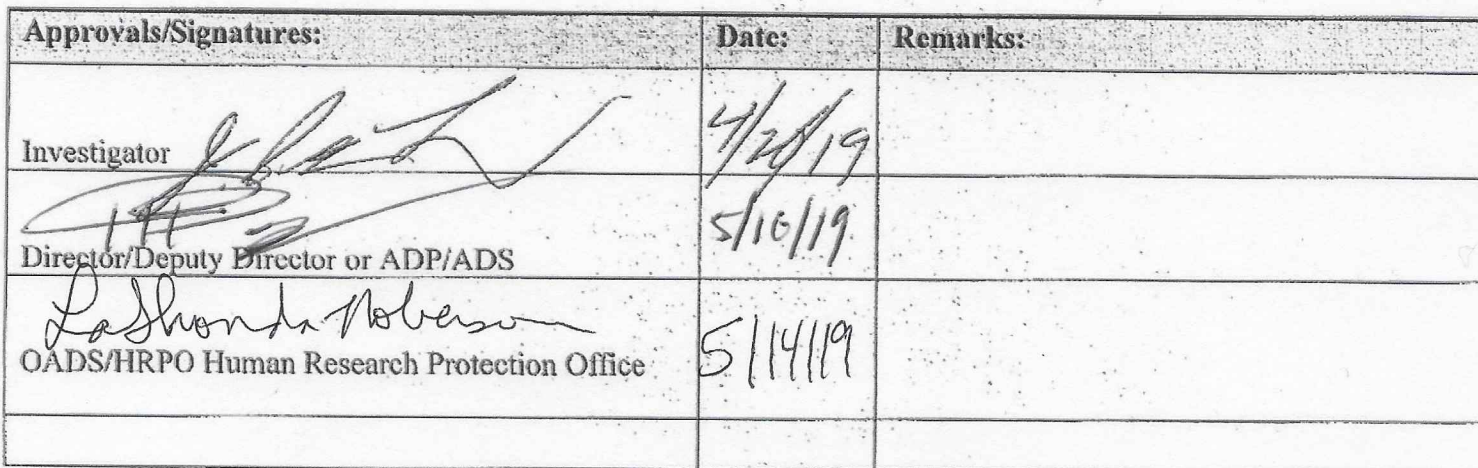 Approvals/Signatures: Date: Remarks:
Investigator
5/10/19
Director/Deputy Director or ADP/ADS
LaShonda Roberson
OADS/HRPO Human Research Protection Office 5/14/19